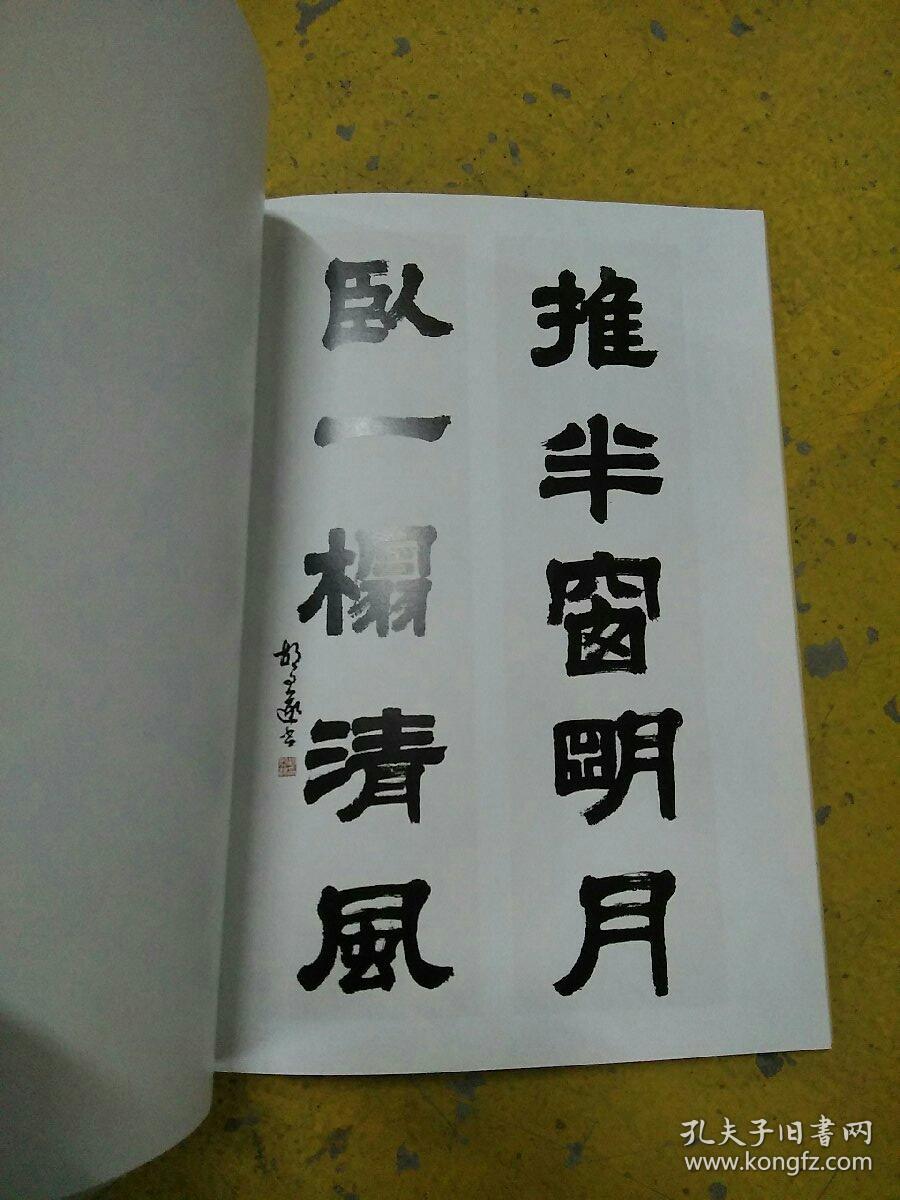 推半窗明月
臥一榻清風
孔夫子旧书网
www.kongfz.com